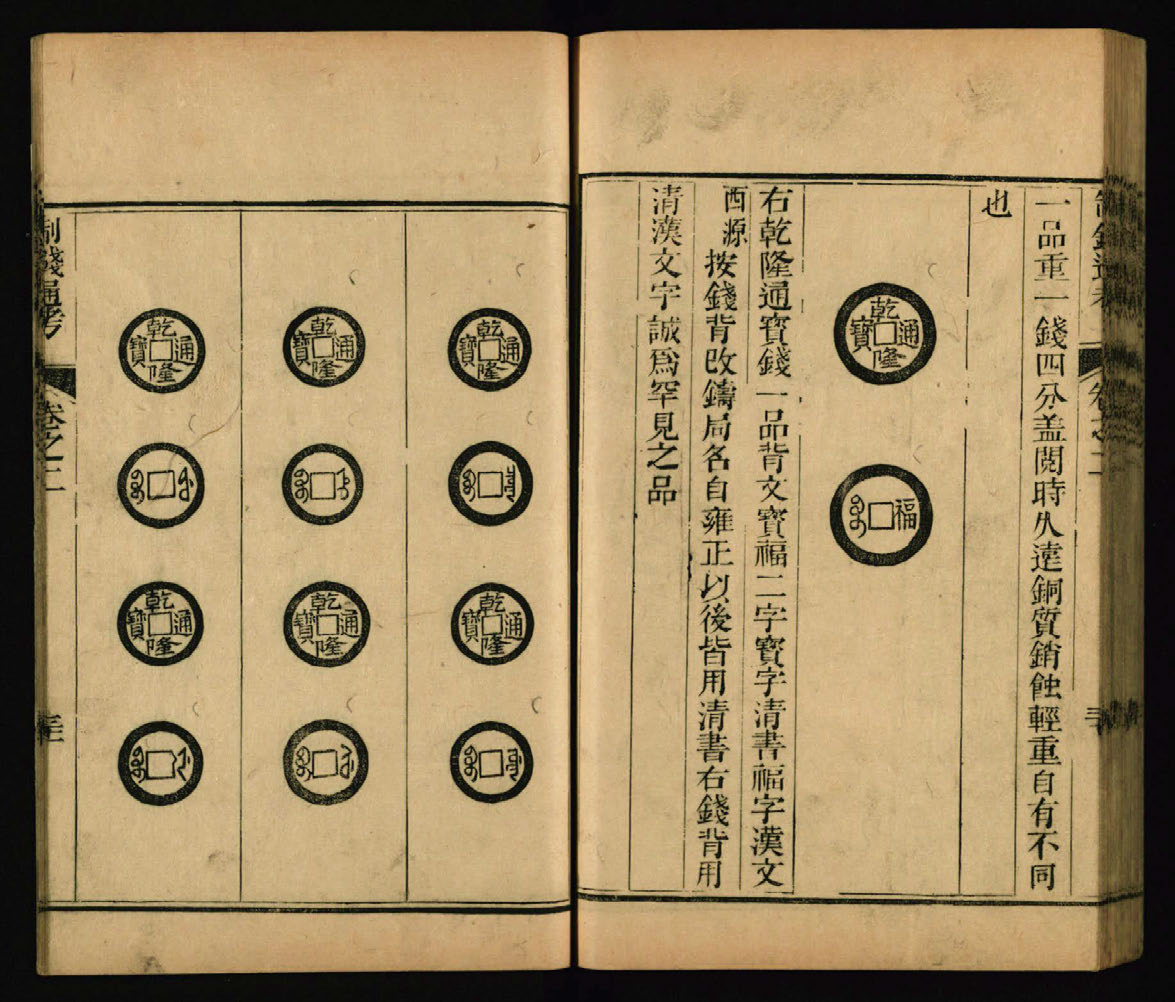 一品重一錢四分盖閱時久遠銅質銷蝕輕重自有不同
也
乾隆通寶
寶福
右乾隆通寶錢一品背文寳福二字寳字清書福字漢文
西源按錢背改鑄局名自雍正以後皆用清書右錢背用
清漢文字誠為罕見之品
乾隆通寶
乾隆通寶
乾隆通寶
乾隆通寶
乾隆通寶
乾隆通寶
制錢通考
卷之二